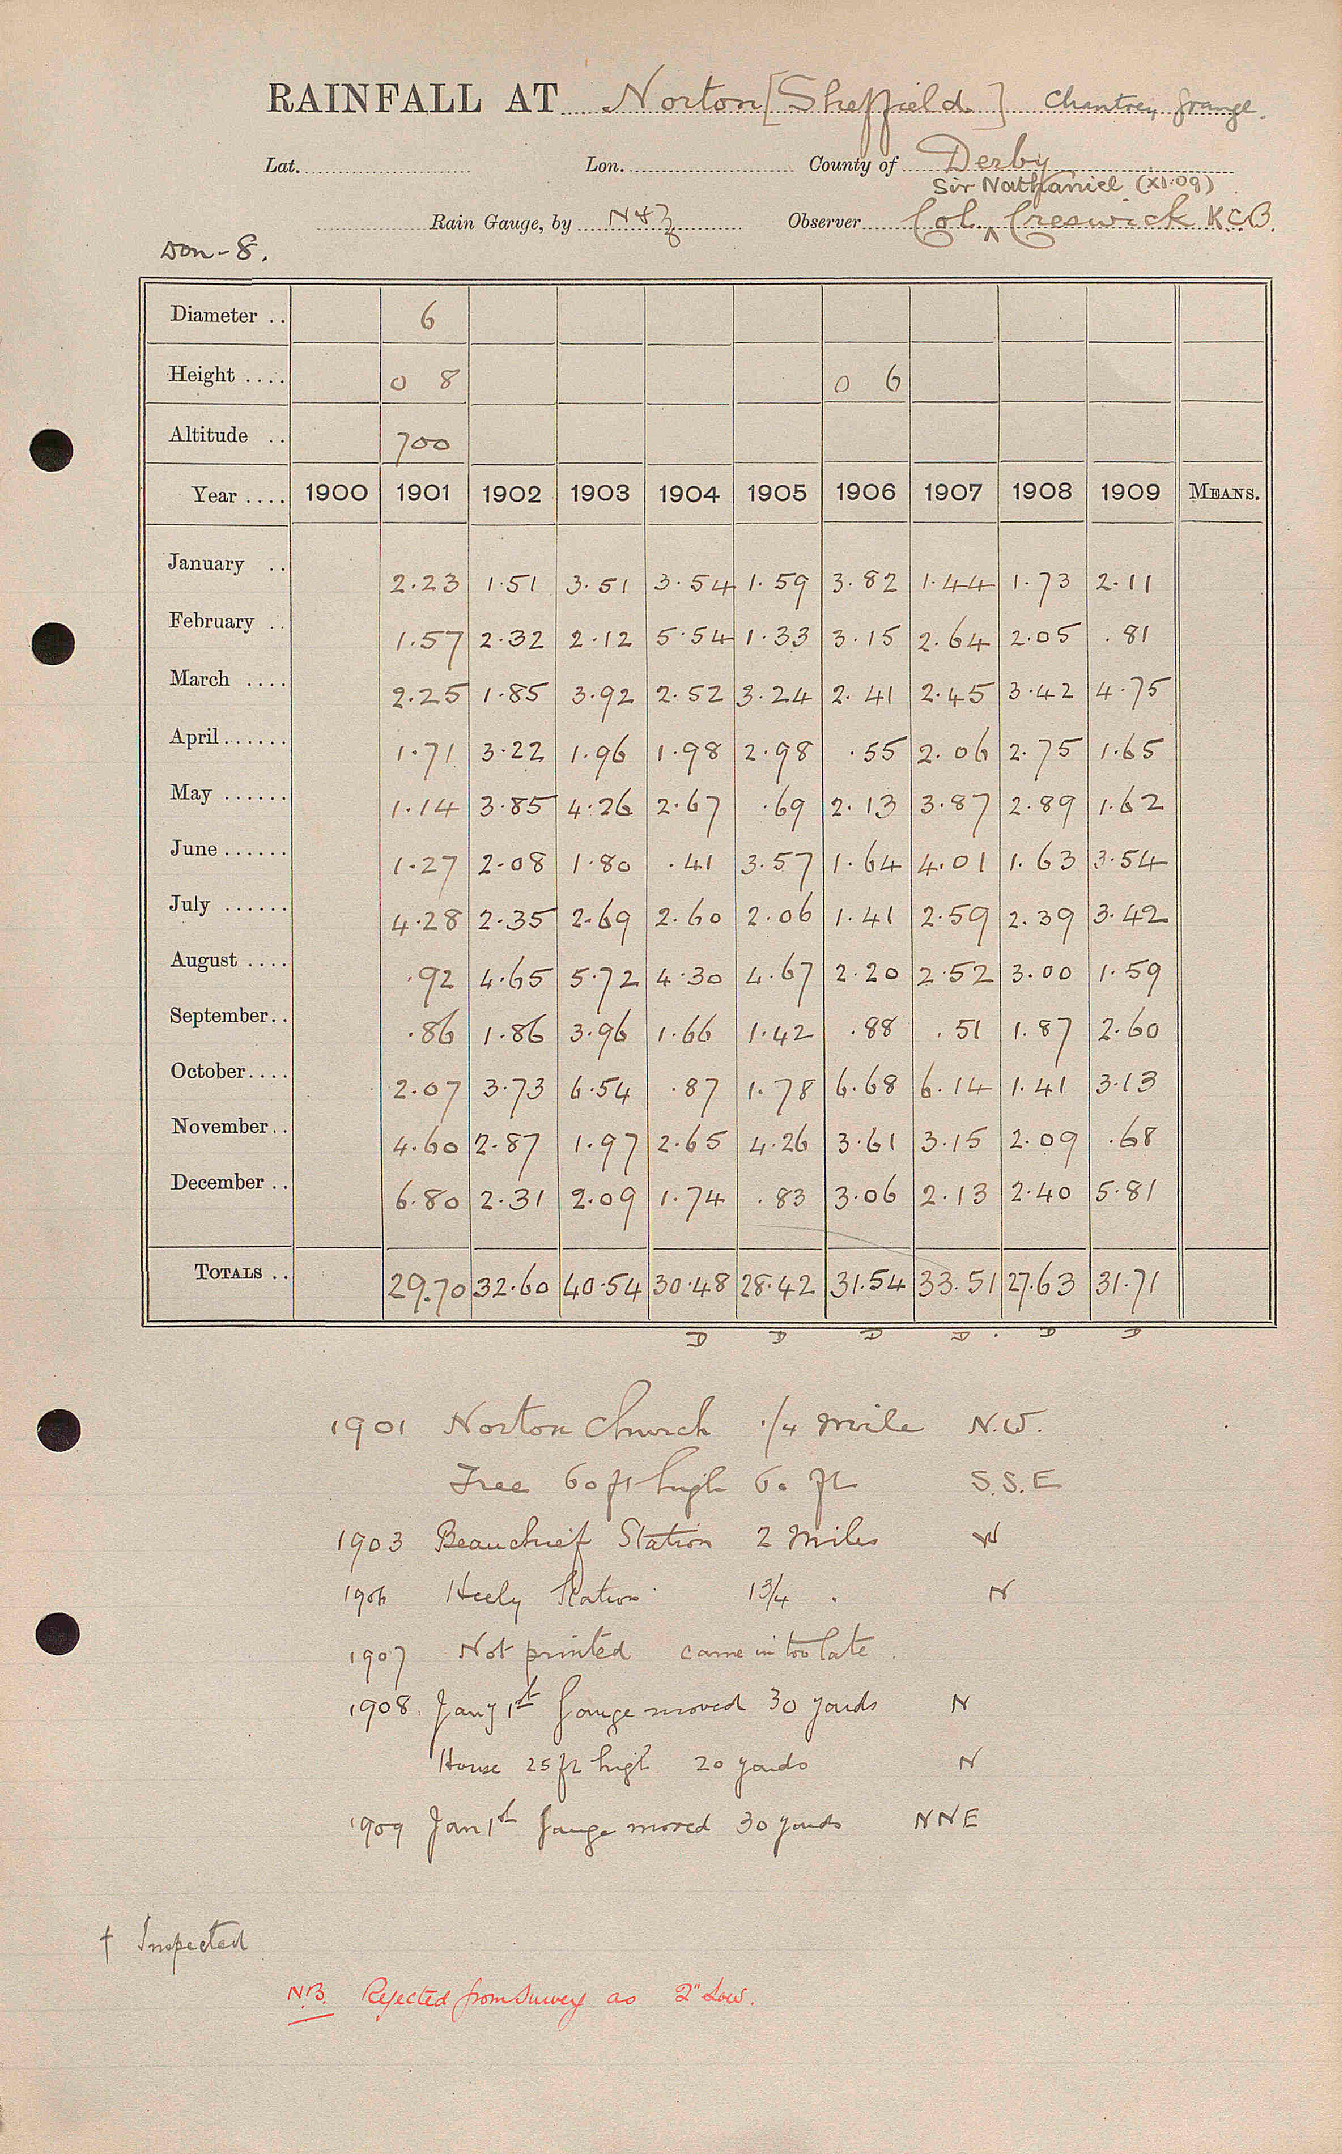 RAINFALL AT Norton [Sheffield] Chantrey Grange.
Lat. Lon. County of Derby
Sir Nathaniel (XI.09)
Rain Gauge, by N & Z Observer Col. ^ Creswick K.C.B.
Don - 8.
Diameter .. 6
Height .... 0 8 0 6
Altitude .. 700
Year .... 1900 1901 1902 1903 1904 1905 1906 1907 1908 1909 MEANS.
January .. 2.23 1.51 3.51 3.54 1.59 3.82 1.44 1.73 2.11
February .. 1.57 2.32 2.12 5.54 1.33 3.15 2.64 2.05 .81
March .... 2.25 1.85 3.92 2.52 3.24 2.41 2.45 3.42 4.75
April...... 1.71 3.22 1.96 1.98 2.98 .55 2.06 2.75 1.65
May ...... 1.14 3.85 4.26 2.67 .69 2.13 3.87 2.89 1.62
June ...... 1.27 2.08 1.80 .41 3.57 1.64 4.01 1.63 3.54
July ...... 4.28 2.35 2.69 2.60 2.06 1.41 2.59 2.39 3.42
August .... .92 4.65 5.72 4.30 4.67 2.20 2.52 3.00 1.59
September.. .86 1.86 3.96 1.66 1.42 .88 .51 1.87 2.60
October.... 2.07 3.73 6.54 .87 1.78 6.68 6.14 1.41 3.13
November.. 4.60 2.87 1.97 2.65 4.26 3.61 3.15 2.09 .68
December .. 6.80 2.31 2.09 1.74 .83 3.06 2.13 2.40 5.81
TOTALS .. 29.70 32.60 40.54 30.48 28.42 31.54 33.51 27.63 31.71
D D D D . D D
1901 Norton Church 1/4 mile N.W.
Tree 60 ft high 60 ft S.S.E
1903 Beauchief Station 2 miles W
1906 Heely Station 1 3/4 " N
1907 Not printed came in too late.
1908 Jany 1st Gauge moved 30 yards N
House 25 ft high 20 yards N
1909 Jan 1st Gauge moved 30 yards NNE
† Inspected
N.B. Rejected from Survey as 2" Low.